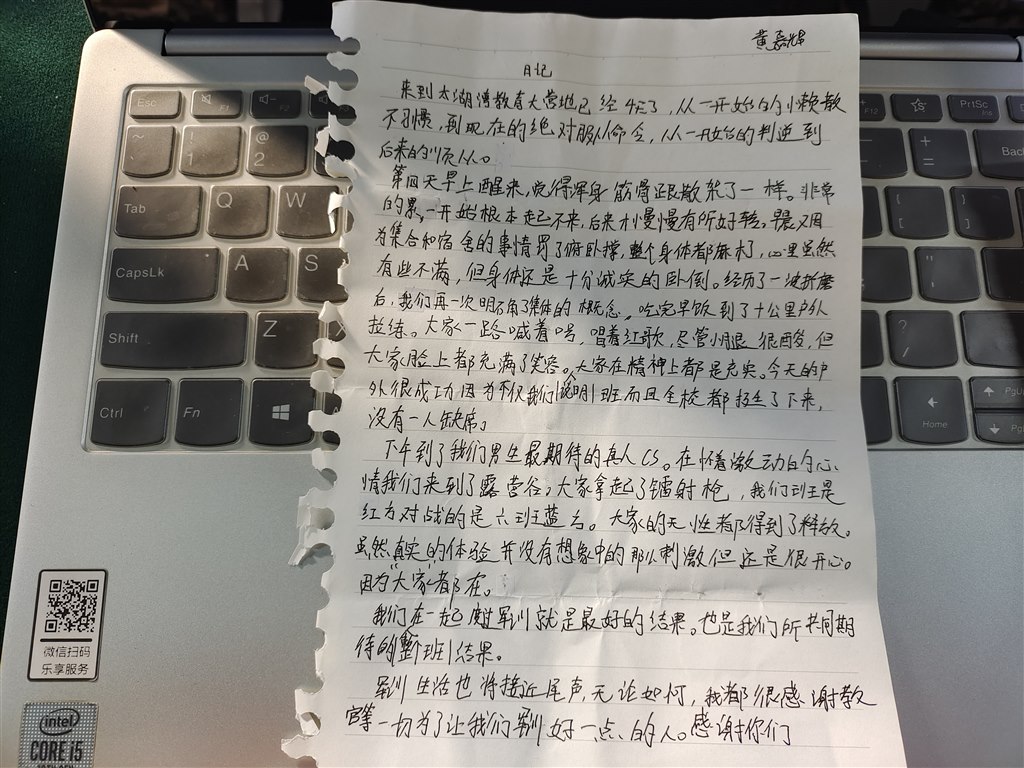 黄
日记
来到太湖湾教育大营地已经4天了，从一开始的小懒散
不习惯，到现在的绝对服从命令，从一开始的叛逆到
后来的顺从。
第四天早上醒来，觉得浑身筋骨跟散架了一样。非常
的累，一开始根本起不来，后来才慢慢有所好转。早晨又因
为集合和宿舍的事情罚了俯卧撑，整个身体都麻了，心里虽然
有些不满，但身体还是十分诚实的卧倒。经历了一波折磨
后，我们再一次明确了集体的概念。吃完早饭到了十公里户外
拉练。大家一路喊着口号，唱着红歌，尽管小腿很酸，但
大家脸上都充满了笑容。大家在精神上都是充实。今天的户
外很成功因为不仅我们(说明)班而且全校都拉练了下来，
没有一人缺席。
下午到了我们男生最期待的真人CS。在怀着激动的心
情我们来到了露营谷，大家拿起了镭射枪，我们班是
红方对战的是六班蓝方。大家的天性都得到了释放。
虽然真实的体验并没有想象中的那么刺激但还是很开心。
因为"大家"都在。
我们在一起度过军训就是最好的结果。也是我们所共同期
待的新班结果。
军训生活也将接近尾声，无论如何，我都很感谢教
官等一切为了让我们训好一点的人。感谢你们
Esc
F1
F2
F12
PrtSc
Ins
~
`
!
1
@
2
+
=
Back
Tab
Q
W
{
[
}
]
CapsLk
A
S
Shift
Z
?
/
Ctrl
Fn
Home
PgU
PgD
微信扫码
乐享服务
intel
CORE i5